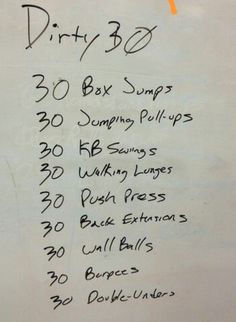 Dirty 30
30 Box Jumps
30 Jumping Pull-ups
30 KB Swings
30 Walking Lunges
30 Push Press
30 Back Extensions
30 Wall Balls
30 Burpees
30 Double-Unders